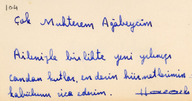 104
Çok Muhterem Ağabeycim
Ailenizle birlikte yeni yılınızı
candan kutlar, en derin hürmetlerimin
kabulünü rica ederim.